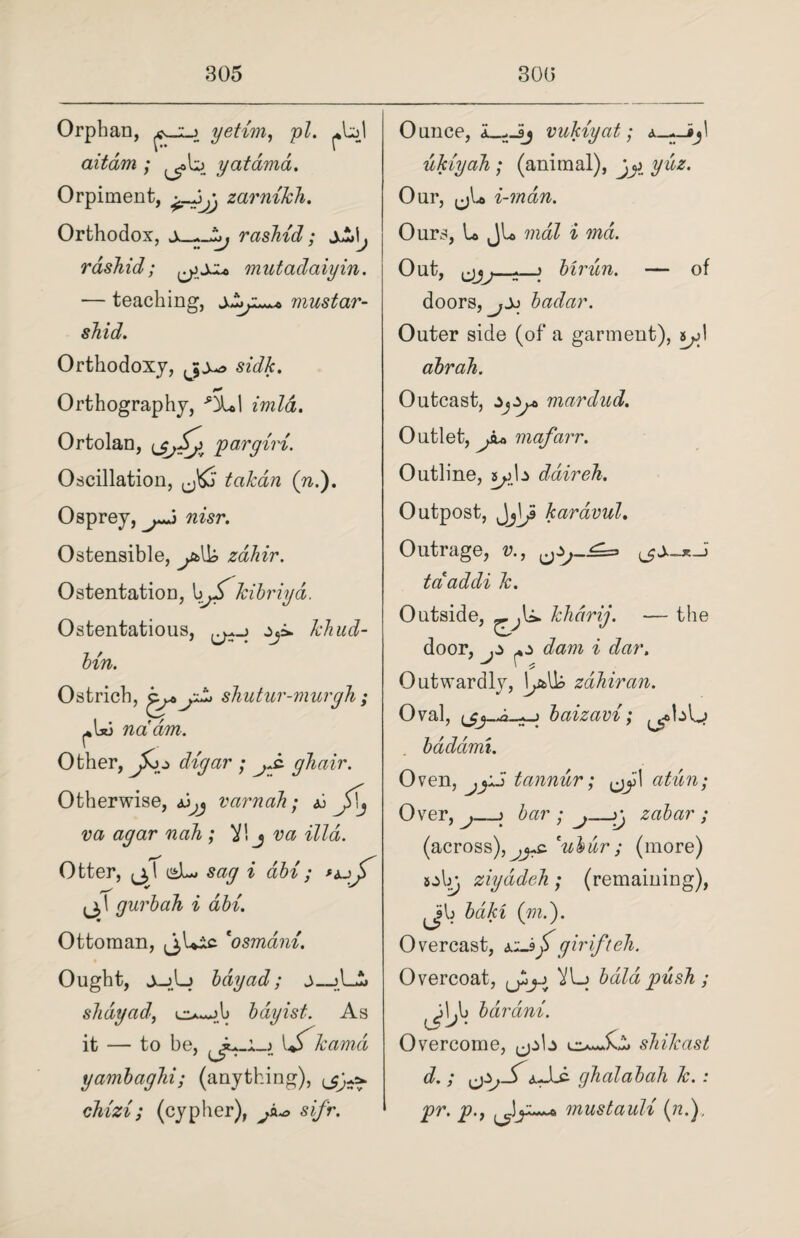 305
306
Orphan, يتيم yetím, pl. ايتام
aitám ; يتامى yatámá.
Orpiment, زرنيخ zarníkh.
Orthodox, رشيد rashíd ; راشد
ráshid ; متدين mutadaiyin.
— teaching, مسترشد mustar-
shid.
Orthodoxy, صدق sidk.
Orthography, املاء imlá.
Ortolan, پرگيرى pargírí.
Oscillation, تكان takán (n.).
Osprey, نسر nisr.
Ostensible, ظاهر záhir.
Ostentation, كبريا kibriyá.
Ostentatious, خود بين khud-
bín.
Ostrich, شتر مرغ shutur-murgh ;
نعام na'ám.
Other, ديگر dígar ; غير ghair.
Otherwise, ورنه varnah ; و اگر نه
va agar nah ; و الا va illá.
Otter, سگ آبى sag i ábí ; گربۀ
آبى gurbah i ábí.
Ottoman, عثمانى 'osmání.
Ought, بايد báyad ; شايد
sháyad, بايست báyist. As
it — to be, كما ينبغى kamá
yambaghi; (anything), چيزى
chízí; (cypher), صفر sifr.
Ounce, وقية vukíyat ; اوقيه
úkíyah ; (animal), يوز yúz.
Our, مان i-mán.
Ours, مال ما mál i má.
Out, بيرون bírún. — of
doors, بدر badar.
Outer side (of a garment), ابره
abrah.
Outcast, مردود mardud.
Outlet, مفر mafarr.
Outline, دايره dáireh.
Outpost, قراول karávul.
Outrage, v., تعدى كردن
ta'addi k.
Outside, خارج khárij. — the
door, دم در dam i dar.
Outwardly, ظاهرا záhiran.
Oval, بيضوى baizaví ; بادامى
bádámí.
Oven, تنور tannúr ; اتون atún;
Over, بر bar ; زبر zabar ;
(across), عبور 'ubúr ; (more)
زياده ziyádeh ; (remaining),
باقى bákí (m.).
Overcast, گرفته girifteh.
Overcoat, بالا پوش bálá púsh ;
بارانى bárání.
Overcome, شكست دادن shikast
d. ; غلبه كردن ghalabah k. :
pr. p., مستولى mustaulí (n.).